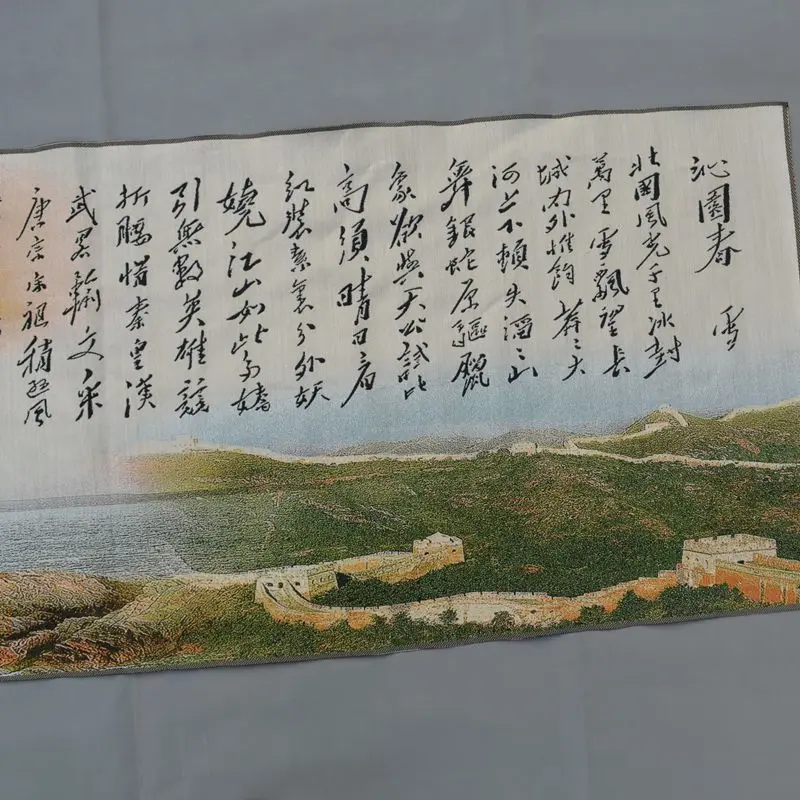 沁園春 雪
北國風光千里冰封
萬里雪飄望長
城内外惟餘莽〻大
河上下頓失滔〻山
舞銀蛇原馳蠟
象欲與天公試比
高須晴日看
紅裝素裹分外妖
嬈江山如此多嬌
引無數英雄競
折腰惜秦皇漢
武畧輸文采
唐宗宋祖稍遜風